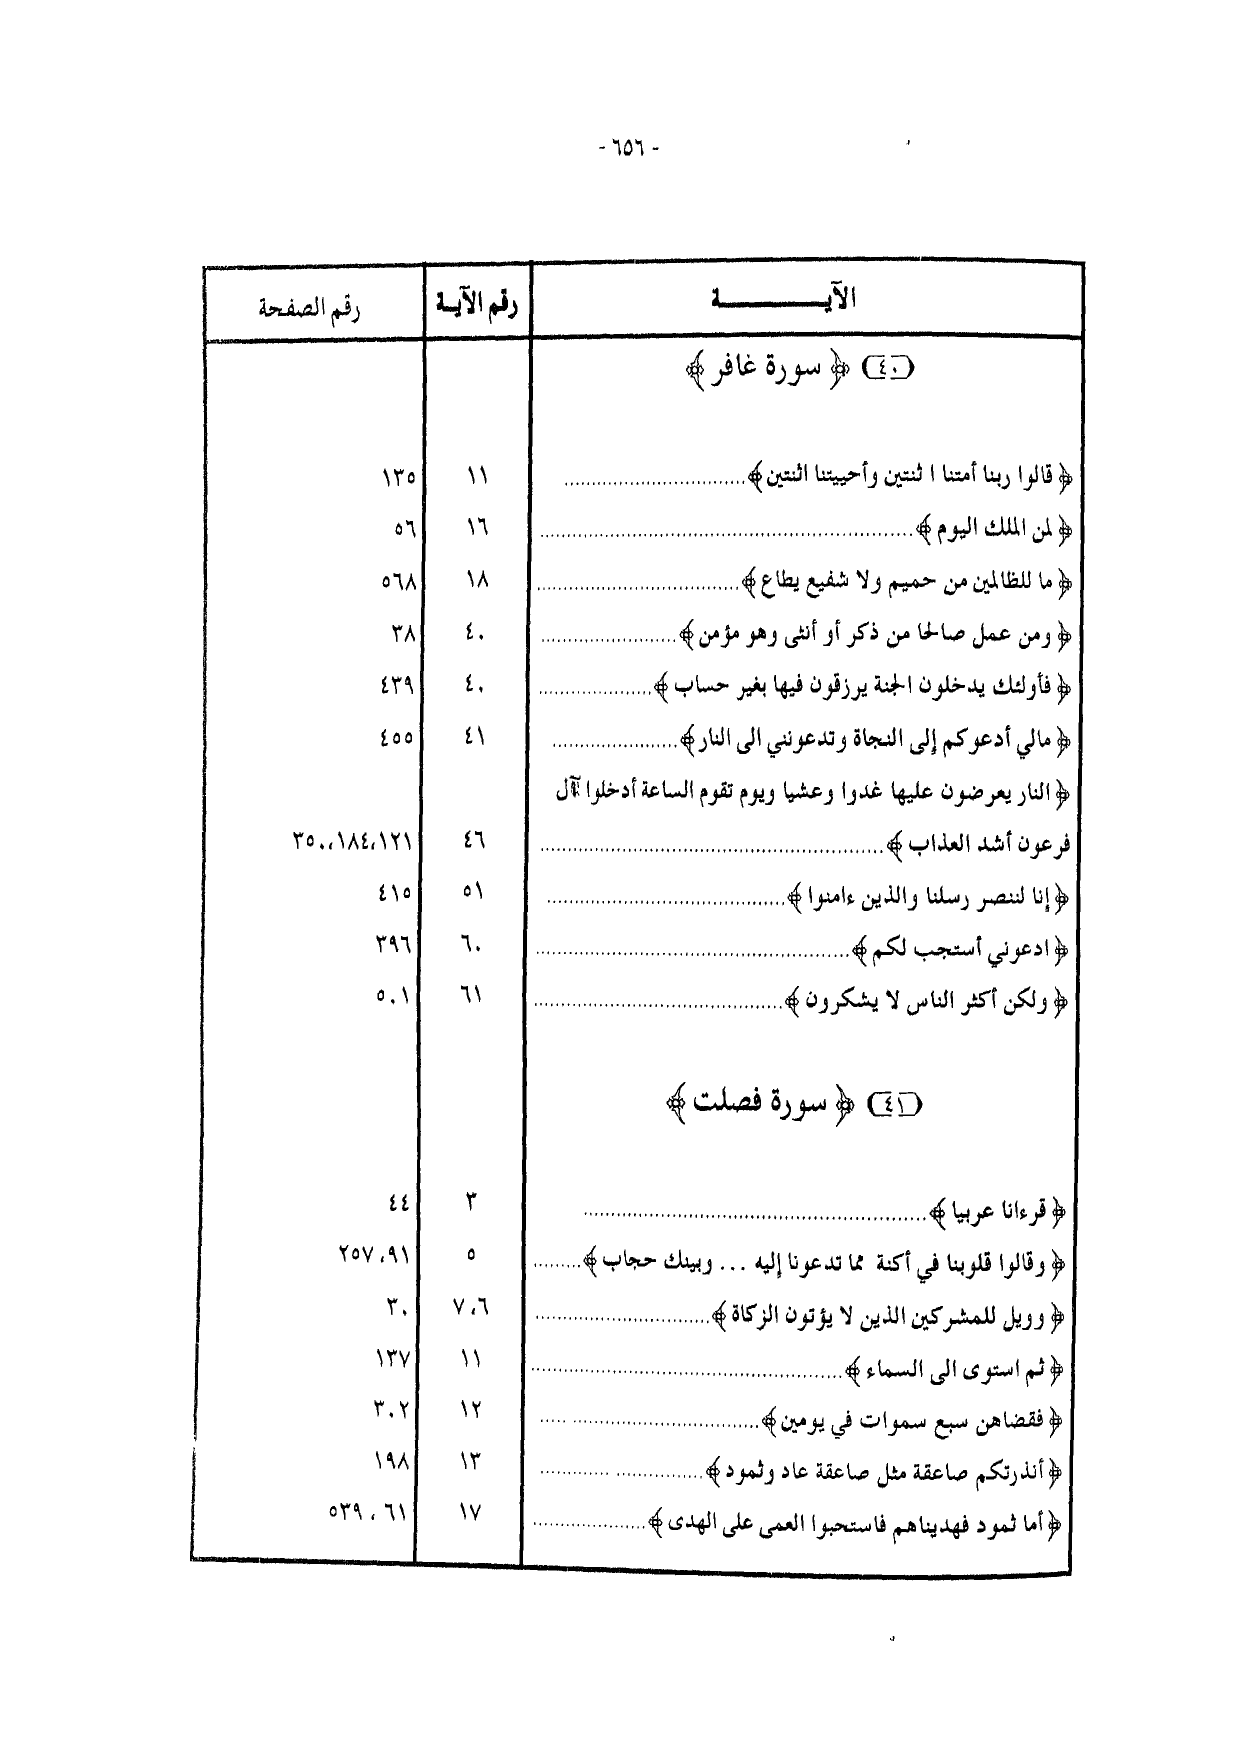 - ٦٥٦ -
الآيــــــة رقم الآية رقم الصفحة
(٤٠) ﴿ سورة غافر ﴾
﴿ قالوا ربنا أمتنا ا ثنتين وأحييتنا اثنتين﴾ .......... ١١ ١٣٥
﴿ لمن الملك اليوم ﴾ .......... ١٦ ٥٦
﴿ ما للظالمين من حميم ولا شفيع يطاع﴾ .......... ١٨ ٥٦٨
﴿ ومن عمل صالحا من ذكر أو أنثى وهو مؤمن﴾ .......... ٤٠ ٣٨
﴿ فأولئك يدخلون الجنة يرزقون فيها بغير حساب ﴾ .......... ٤٠ ٤٣٩
﴿ مالي أدعوكم إلى النجاة وتدعونني الى النار﴾ .......... ٤١ ٤٥٥
﴿ النار يعرضون عليها غدوا وعشيا ويوم تقوم الساعة أدخلوا آل
فرعون أشد العذاب ﴾ .......... ٤٦ ١٢١، ١٨٤، ٣٥٠
﴿ إنا لننصر رسلنا والذين ءامنوا ﴾ .......... ٥١ ٤١٥
﴿ ادعوني أستجب لكم ﴾ .......... ٦٠ ٣٩٦
﴿ ولكن أكثر الناس لا يشكرون ﴾ .......... ٦١ ٥٠١
(٤١) ﴿ سورة فصلت ﴾
﴿ قرءانا عربيا ﴾ .......... ٣ ٤٤
﴿ وقالوا قلوبنا في أكنة مما تدعونا إليه ... وبينك حجاب ﴾ .......... ٥ ٩١، ٢٥٧
﴿ وويل للمشركين الذين لا يؤتون الزكاة ﴾ .......... ٦، ٧ ٣٠
﴿ ثم استوى الى السماء ﴾ .......... ١١ ١٣٧
﴿ فقضاهن سبع سموات في يومين ﴾ .......... ١٢ ٣٠٢
﴿ أنذرتكم صاعقة مثل صاعقة عاد وثمود ﴾ .......... ١٣ ١٩٨
﴿ أما ثمود فهديناهم فاستحبوا العمى على الهدى ﴾ .......... ١٧ ٦١، ٥٣٩